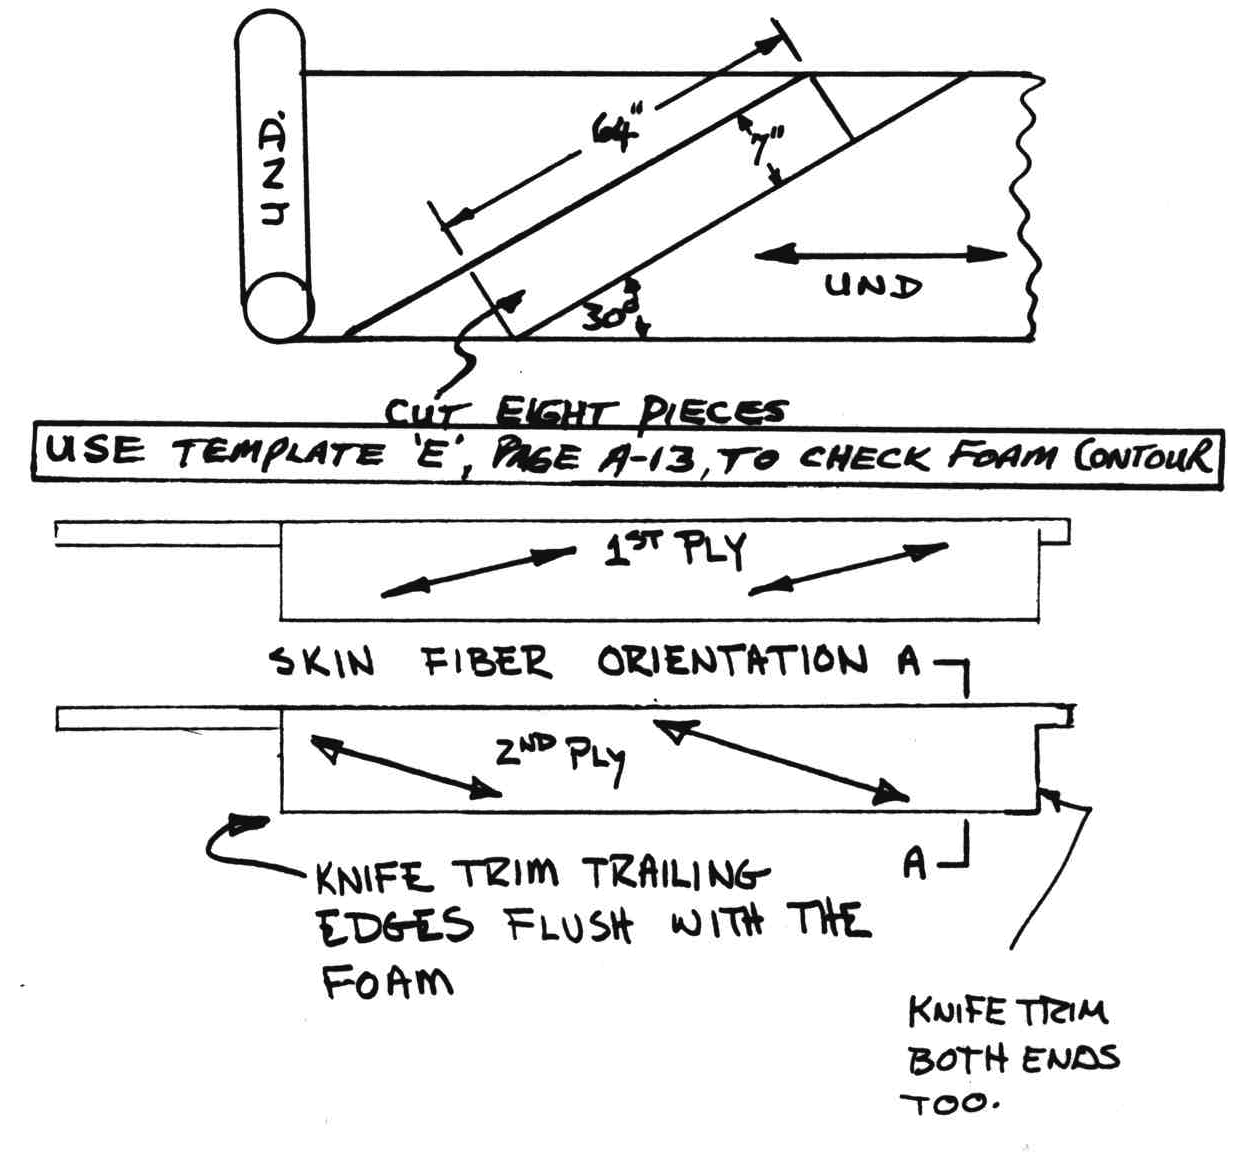 UND.
64"
7"
30°
UND
CUT EIGHT PIECES
USE TEMPLATE 'E', PAGE A-13, TO CHECK FOAM CONTOUR
1ST PLY
SKIN FIBER ORIENTATION A
2ND PLY
A
KNIFE TRIM TRAILING
EDGES FLUSH WITH THE
FOAM
KNIFE TRIM
BOTH ENDS
TOO.